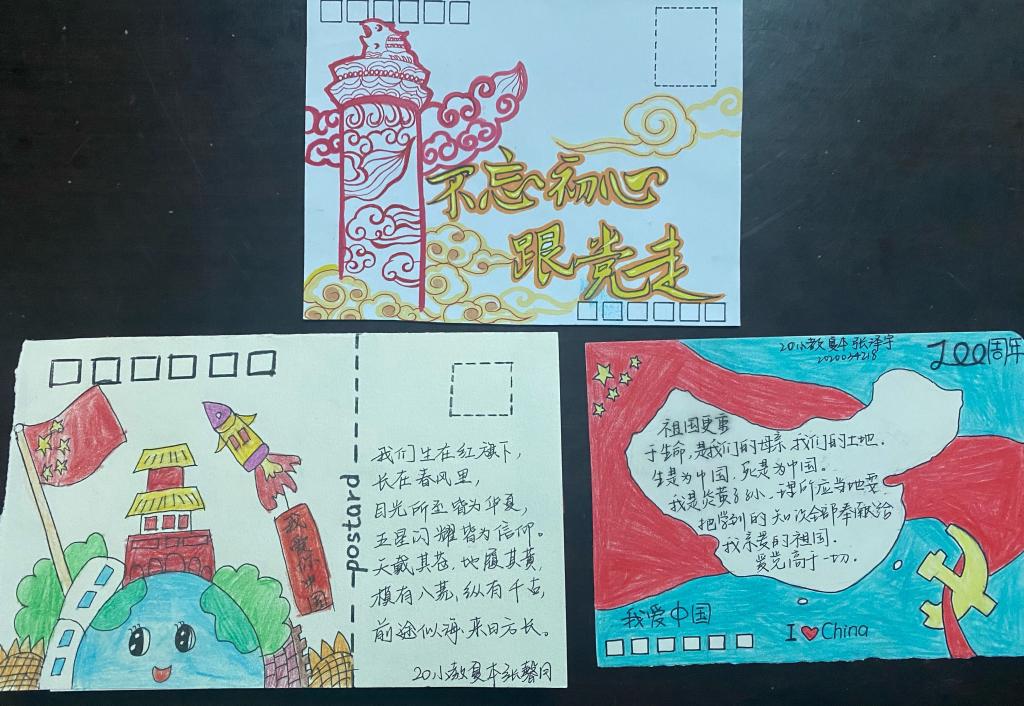 不忘初心
跟党走
postard
我爱你中国
我们生在红旗下,
长在春风里,
目光所至皆为华夏,
五星闪耀皆为信仰。
天戴其苍,地履其黄,
横有八荒,纵有千古,
前途似海,来日方长。
20小教夏本张馨月
20小教夏本 张泽宇
2020034218
100周年
祖国更重
于生命,是我们的母亲 我们的土地.
生是为中国,死是为中国.
我是炎黄子孙,理所应当地要
把学到的知识全部奉献给
我亲爱的祖国.
爱党高于一切.
我爱中国
I ❤ China